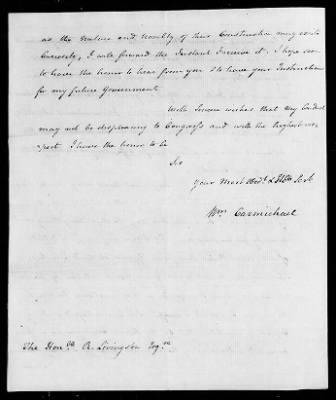 as the nature and novelty of their Construction may excite
Curiosity, I will forward the Instant I receive it. I hope soon
to have the honor to hear from you & to have your Instructions
for my future Government
With Sincere wishes that my Conduct
may not be displeasing to Congress and with the highest res-
pect I have the honor to be
Sir
Your Most Obed.t & Hble Servt
Wm Carmichael
The Hon.ble R. Livingston Esq.re